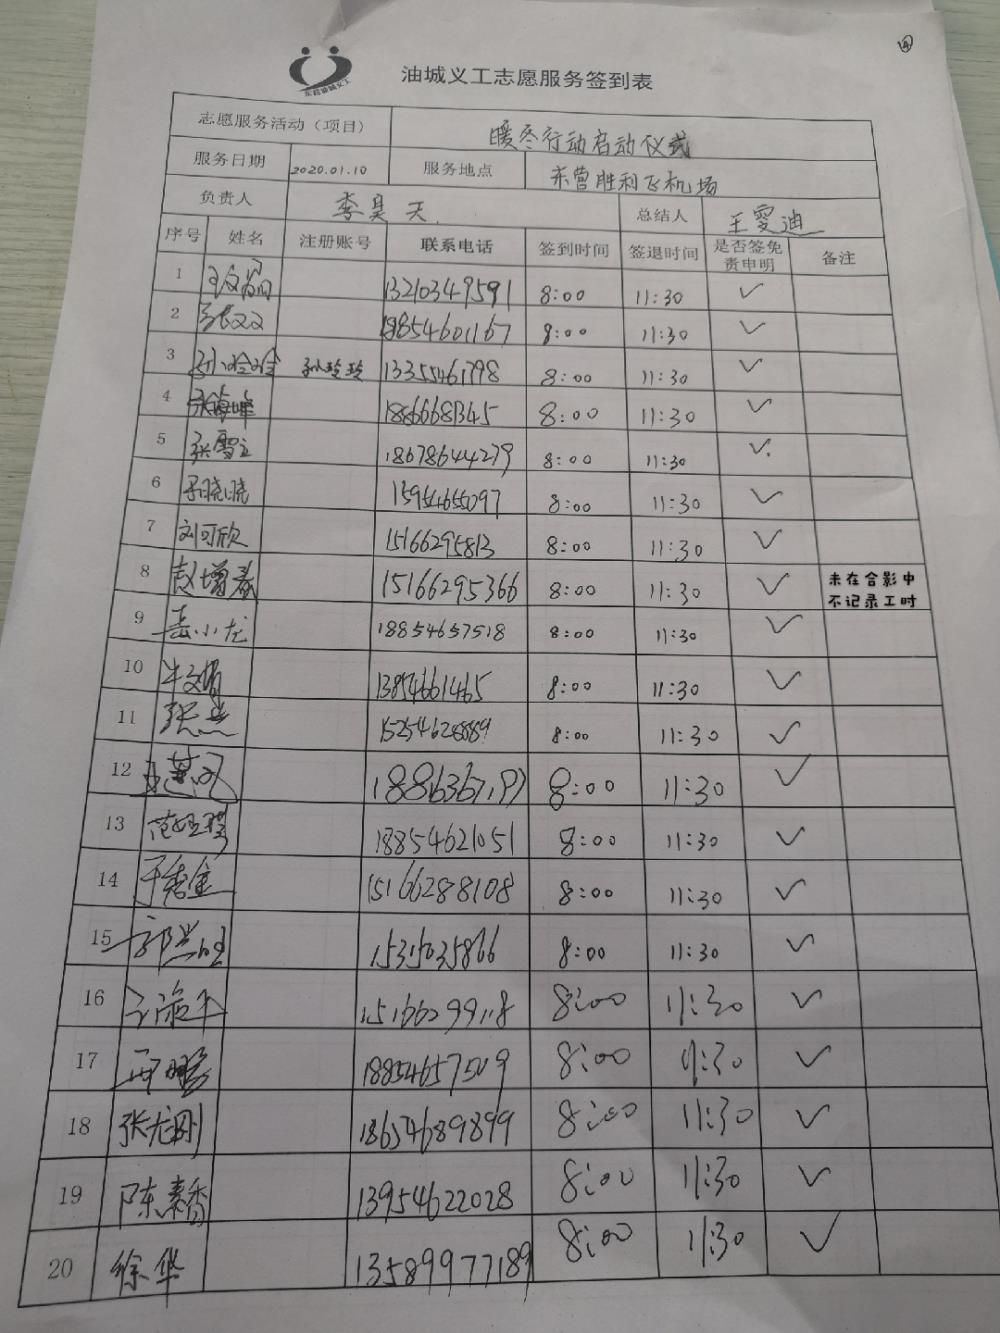 ④
东营油城义工
油城义工志愿服务签到表
志愿服务活动（项目） 暖冬行动启动仪式
服务日期 2020.01.10 服务地点 东营胜利飞机场
负责人 李昊天 总结人 王雯迪
序号 姓名 注册账号 联系电话 签到时间 签退时间 是否签免责申明 备注
1 13210349591 8:00 11:30 ✓
2 18854601167 8:00 11:30 ✓
3 孙玲玲 孙玲玲 13355461798 8:00 11:30 ✓
4 张海峰 18866681345 8:00 11:30 ✓
5 张雪立 18678644279 8:00 11:30 ✓
6 晓晓 15954655097 8:00 11:30 ✓
7 刘可欣 15166295813 8:00 11:30 ✓
8 赵增春 15166295366 8:00 11:30 ✓ 未在合影中
不记录工时
9 岳小龙 18854657518 8:00 11:30 ✓
10 牛文娟 13854661465 8:00 11:30 ✓
11 15254628889 8:00 11:30 ✓
12 8:00 11:30 ✓
13 18854621051 8:00 11:30 ✓
14 于秀金 15166288108 8:00 11:30 ✓
15 15315035866 8:00 11:30 ✓
16 8:00 11:30 ✓
17 18854657509 8:00 11:30 ✓
18 张龙刚 18654689899 8:00 11:30 ✓
19 陈素香 13954622028 8:00 11:30 ✓
20 徐华 13589977189 8:00 11:30 ✓